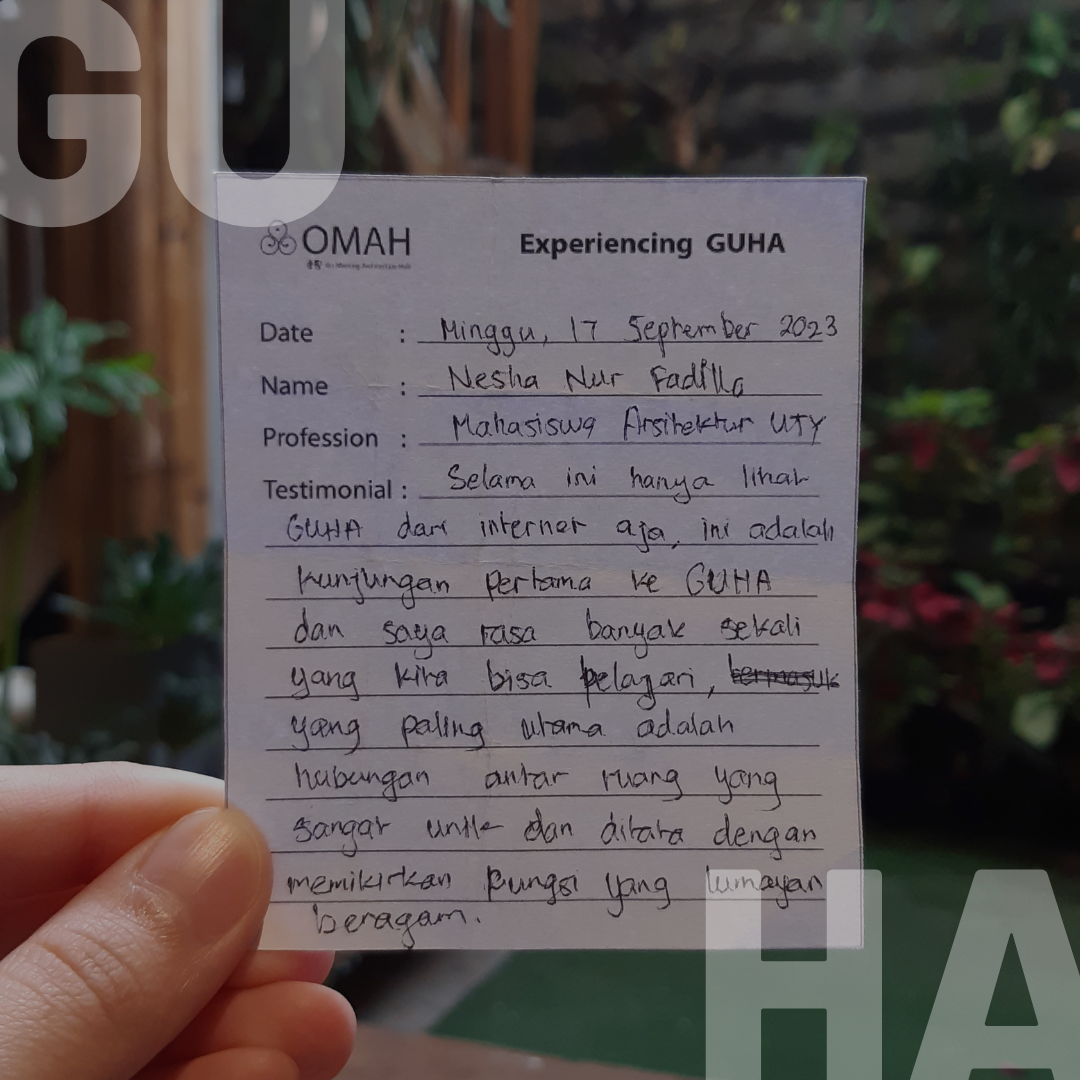 GU
OMAH
Experiencing GUHA
Date : Minggu, 17 September 2023
Name : Nesha Nur Fadilla
Profession : Mahasiswa Arsitektur UTY
Testimonial : Selama ini hanya lihat
GUHA dari internet aja, ini adalah
kunjungan pertama ke GUHA
dan saya rasa banyak sekali
yang kita bisa pelajari, termasuk
yang paling utama adalah
hubungan antar ruang yang
sangat unik dan ditata dengan
memikirkan fungsi yang lumayan
beragam.
HA